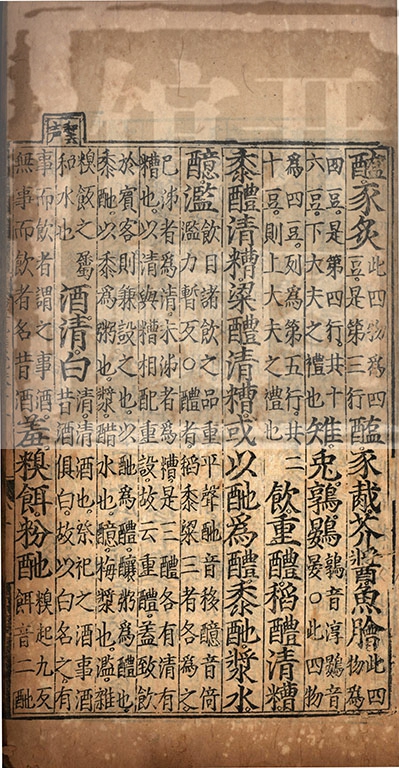 醢豕炙此四物爲四豆是第三行醢豕胾芥醬魚膾此四物爲
四豆是第四行共十六豆下大夫之禮也雉兔鶉鷃鶉音淳鷃音晏○此四物
爲四豆列爲第五行共二十豆則上大夫之禮也飲重醴稻醴清糟
黍醴清糟粱醴清糟或以酏爲醴黍酏漿水
醷濫飲目諸飲之品重平聲酏音移醷音倚濫力暫反○醴者稻黍粱三者各爲之
已泲者爲清未泲者爲糟是三醴各有清有糟也以清與糟相配重設故云重醴蓋致飲
於賓客則兼設之也以酏爲醴釀粥爲醴也黍酏以黍爲粥也漿醋水也醷梅漿也濫雜
糗飯之屬和水也酒清白清清酒也祭祀之酒事酒昔酒俱白故以白名之有
事而飲者謂之事酒無事而飲者名昔酒羞糗餌粉酏糗起九反餌音二酏